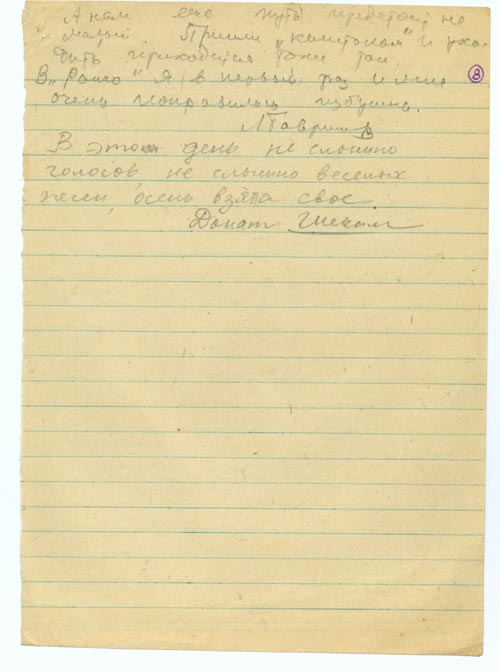 А нам еще путь предстоит не
малый. Пришли „компаком" и ухо-
дить приходится тоже так.
В „Ранчо" я в первый раз и мне
очень понравилась избушка.
8
В этот день не слышно
голосов, не слышно веселых
песен, осень взяла свое.
Донат